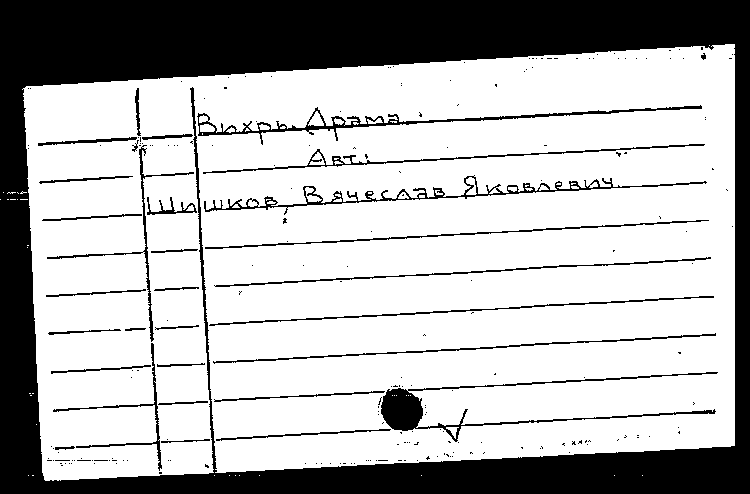 Вихрь. Драма.
Авт.:
Шишков, Вячеслав Яковлевич.